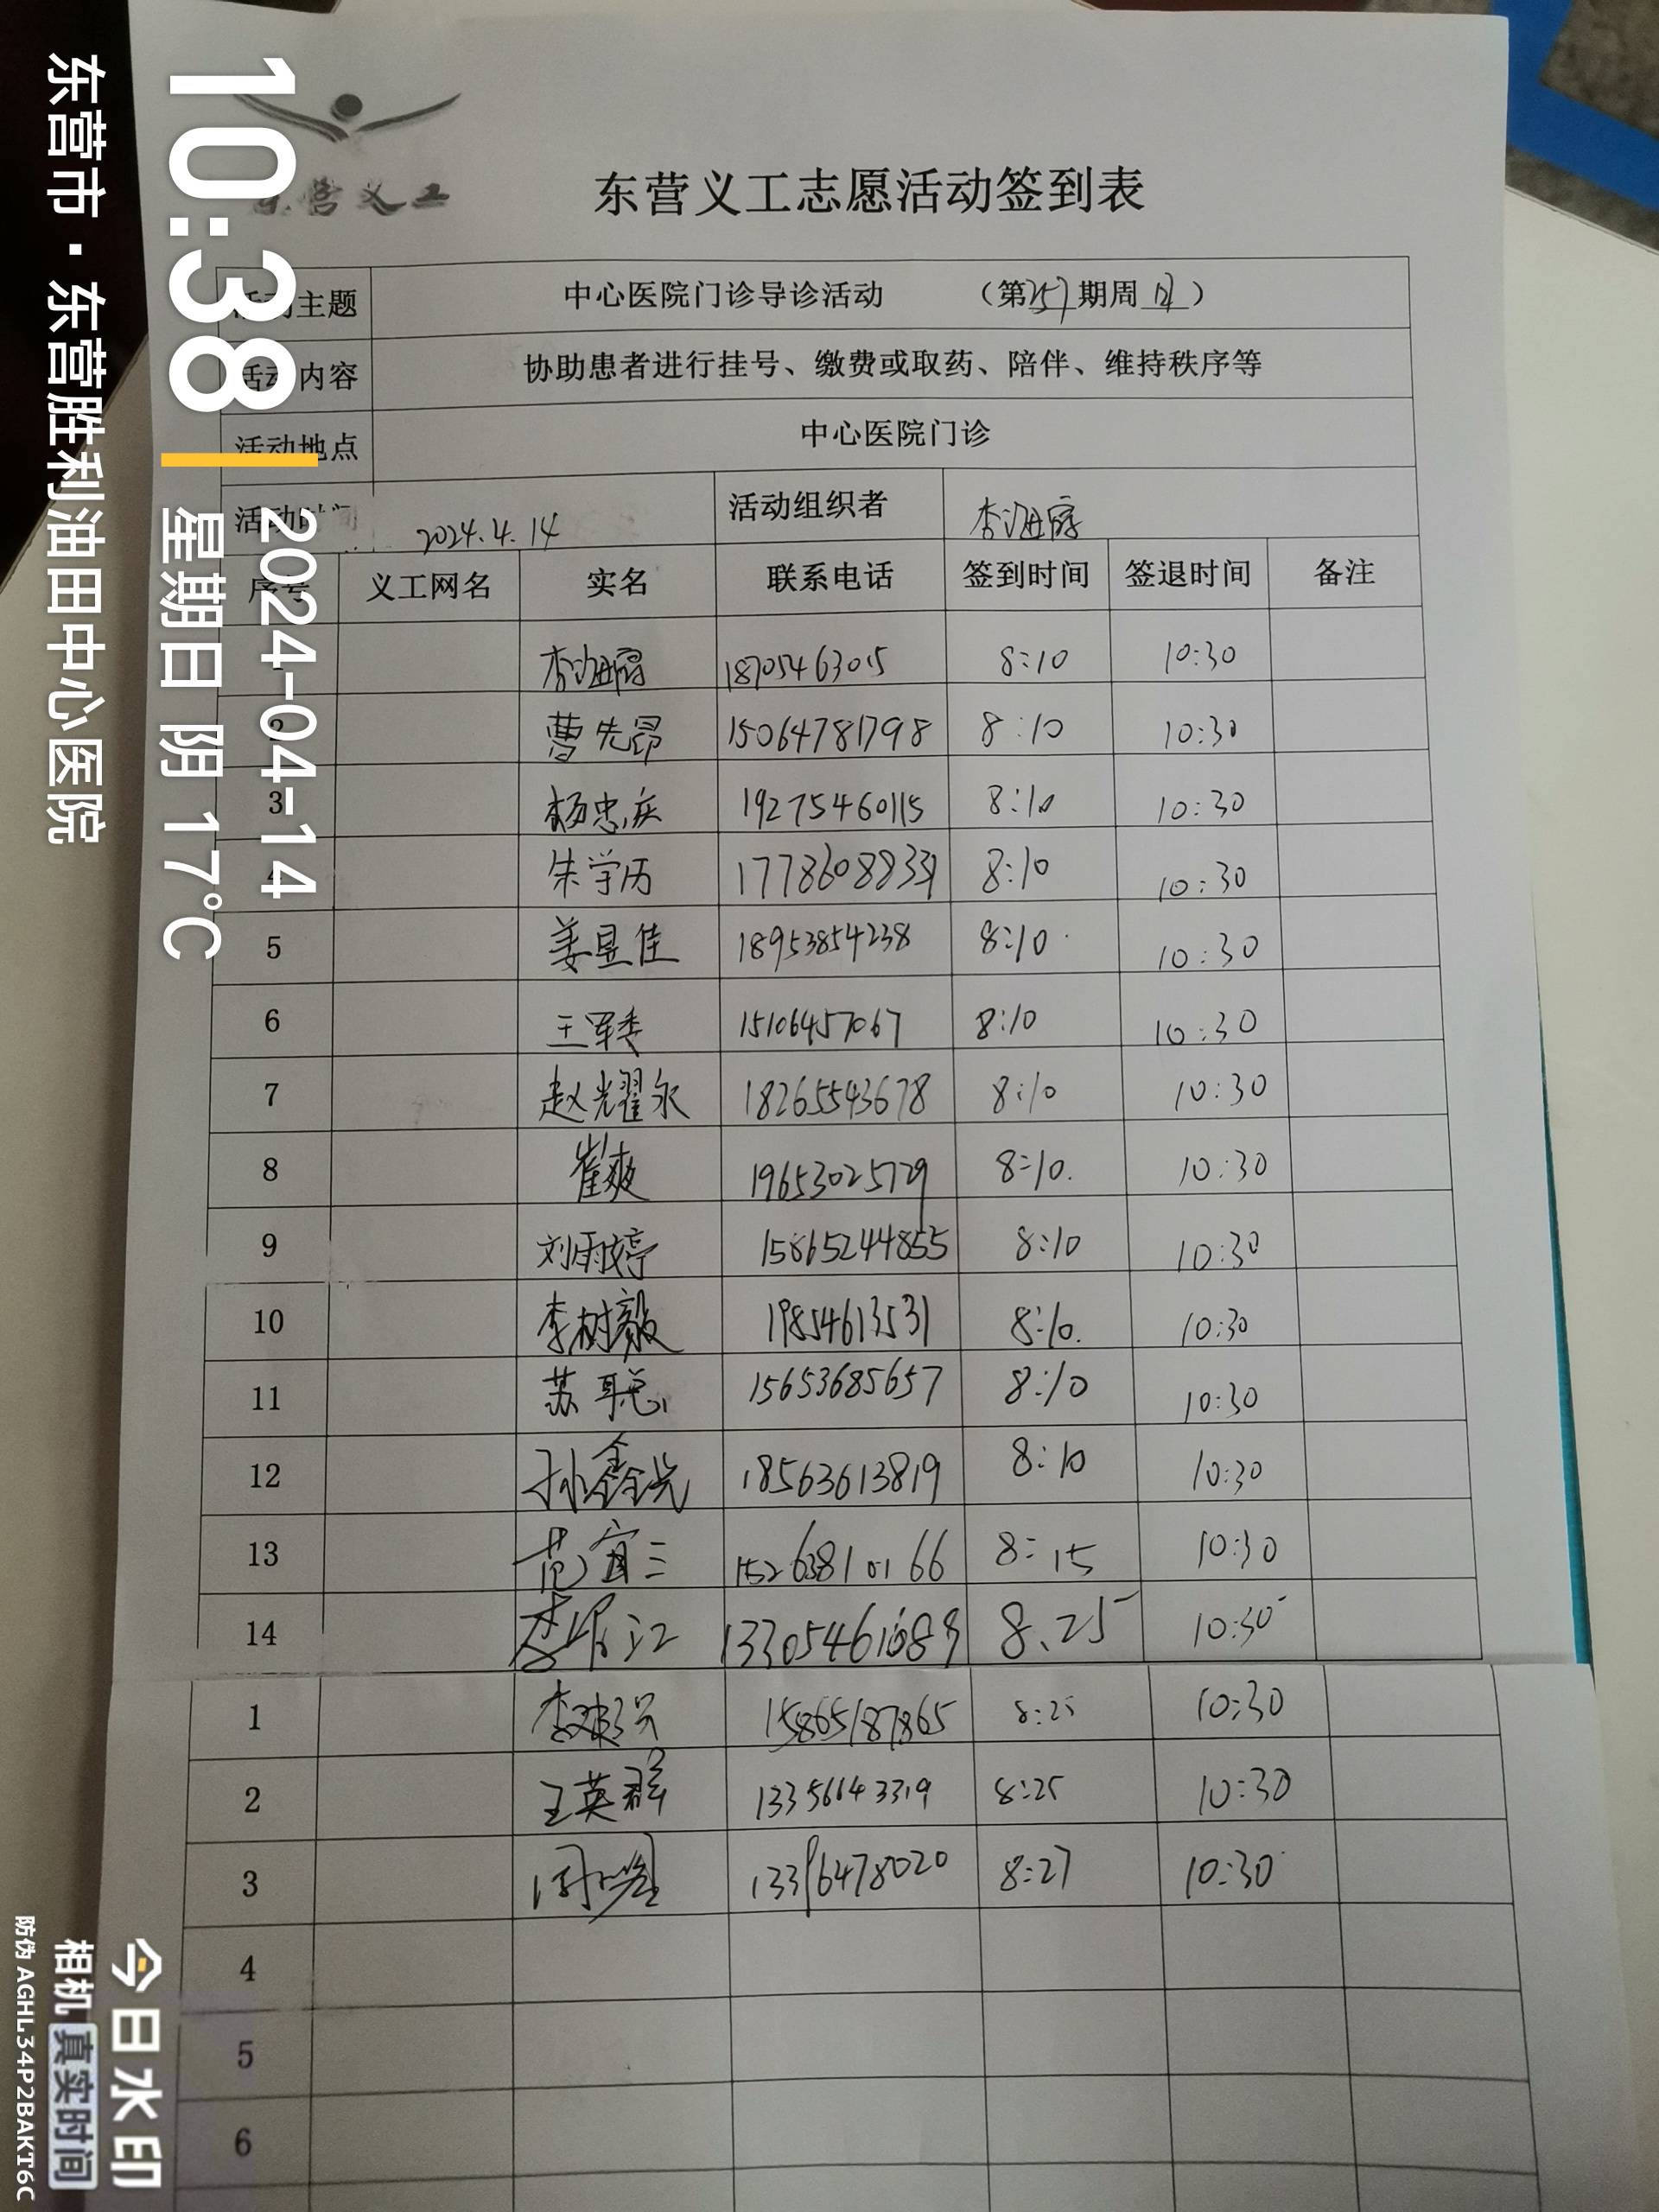 东营义工
东营义工志愿活动签到表
活动主题 中心医院门诊导诊活动 （第257期周日）
活动内容 协助患者进行挂号、缴费或取药、陪伴、维持秩序等
活动地点 中心医院门诊
活动时间 2024.4.14 活动组织者
序号 义工网名 实名 联系电话 签到时间 签退时间 备注
18705463015 8:10 10:30
2 曹先昂 15064781798 8:10 10:30
3 杨忠庆 19275460115 8:10 10:30
4 朱学历 8:10 10:30
5 姜昱佳 18953854238 8:10 10:30
6 王军秀 15106457067 8:10 10:30
7 赵耀永 18265543678 8:10 10:30
8 崔爽 19653025729 8:10. 10:30
9 刘雨婷 15865244855 8:10 10:30
10 李树毅 19854613531 8:10. 10:30
11 苏聪 15653685657 8:10 10:30
12 孙鑫光 18563613819 8:10 10:30
13 范宜三 15263810166 8:15 10:30
14 13305461689 8.25 10:30
1 15865187865 8:25 10:30
2 王英群 13356643319 8:25 10:30
3 13396478020 8:27 10:30
4
5
6
10:38
2024-04-14
星期日 阴 17℃
东营市·东营胜利油田中心医院
今日水印
相机 真实时间
防伪 AGHL34P2BAKT6C